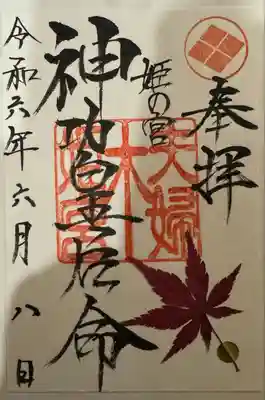 奉拝
姫の宮
夫婦
木
姫宮
神功皇后命
令和六年六月八日